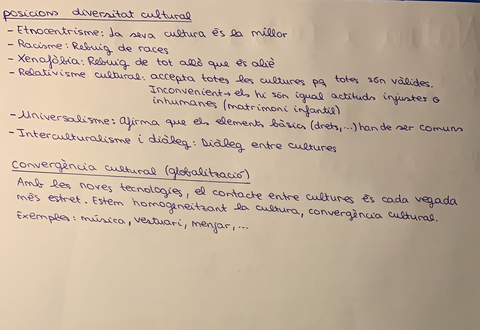 posicions diversitat cultural
- Etnocentrisme: la seva cultura és la millor
- Racisme: Rebuig de races
- Xenofòbia: Rebuig de tot allò que és aliè
- Relativisme cultural: accepta totes les cultures pq totes són vàlides.
Inconvenient → els hi són igual actituds injustes o
inhumanes (matrimoni infantil)
- Universalisme: Afirma que els elements bàsics (drets,...) han de ser comuns
- Interculturalisme i diàleg: Diàleg entre cultures
Convergència cultural (globalització)
Amb les noves tecnologies, el contacte entre cultures és cada vegada
més estret. Estem homogeneïtzant la cultura, convergència cultural.
Exemples: música, vestuari, menjar,...